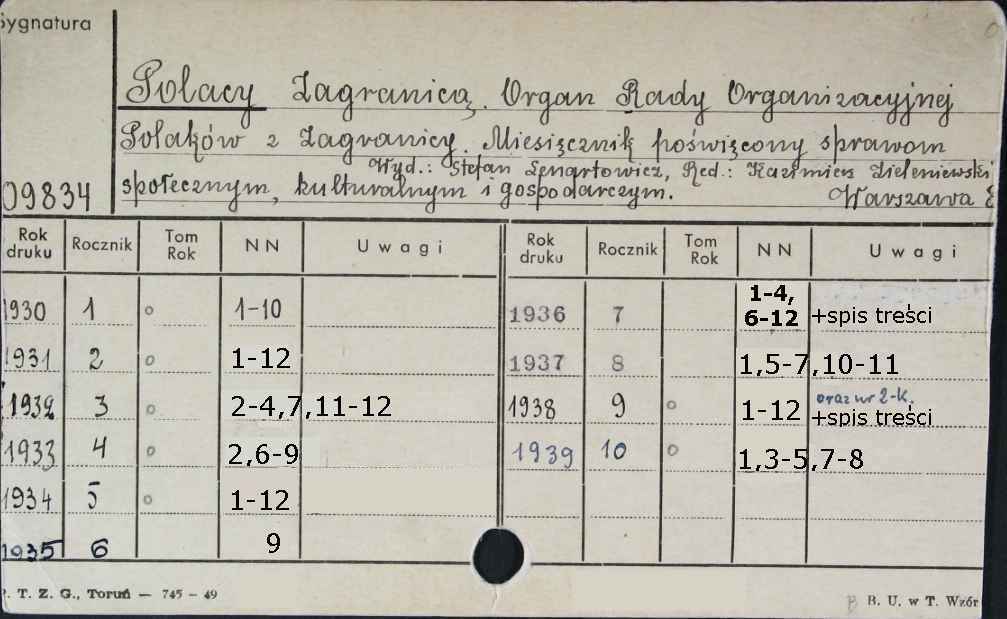 Sygnatura
Polacy Zagranicą. Organ Rady Organizacyjnej
Polaków z Zagranicy. Miesięcznik poświęcony sprawom
Wyd.: Stefan Lenartowicz, Red.: Kazimierz Zieleniewski
09834 społecznym, kulturalnym i gospodarczym. Warszawa
Rok druku Rocznik Tom Rok NN Uwagi Rok druku Rocznik Tom Rok NN Uwagi
1930 1 o 1-10 1936 7 1-4, 6-12 +spis treści
1931 2 o 1-12 1937 8 1,5-7,10-11
1932 3 o 2-4,7,11-12 1938 9 o 1-12 oraz nr 2-k. +spis treści
1933 4 o 2,6-9 1939 10 o 1,3-5,7-8
1934 5 o 1-12
1935 6 9
P. T. Z. G., Toruń — 745 — 49 B. U. w T. Wzór